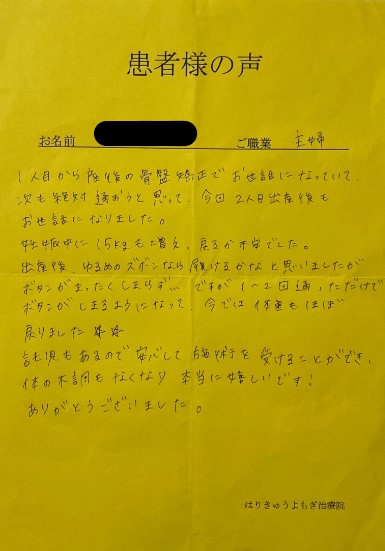 患者様の声
お名前 ご職業 主婦
1人目から産後の骨盤矯正でお世話になっていて、
次も絶対通おうと思って、今回2人目出産後も
お世話になりました。
妊娠中に15kgも増え、戻るか不安でした。
出産後、ゆるめのズボンなら履けるかなと思いましたが
ボタンがまったくしまらず… ですが1～2回通っただけで
ボタンがしまるようになって、今では体重もほぼ
戻りました
託児もあるので安心して施術を受けることができ、
体の不調もなくなり本当に嬉しいです!
ありがとうございました。
はりきゅうよもぎ治療院